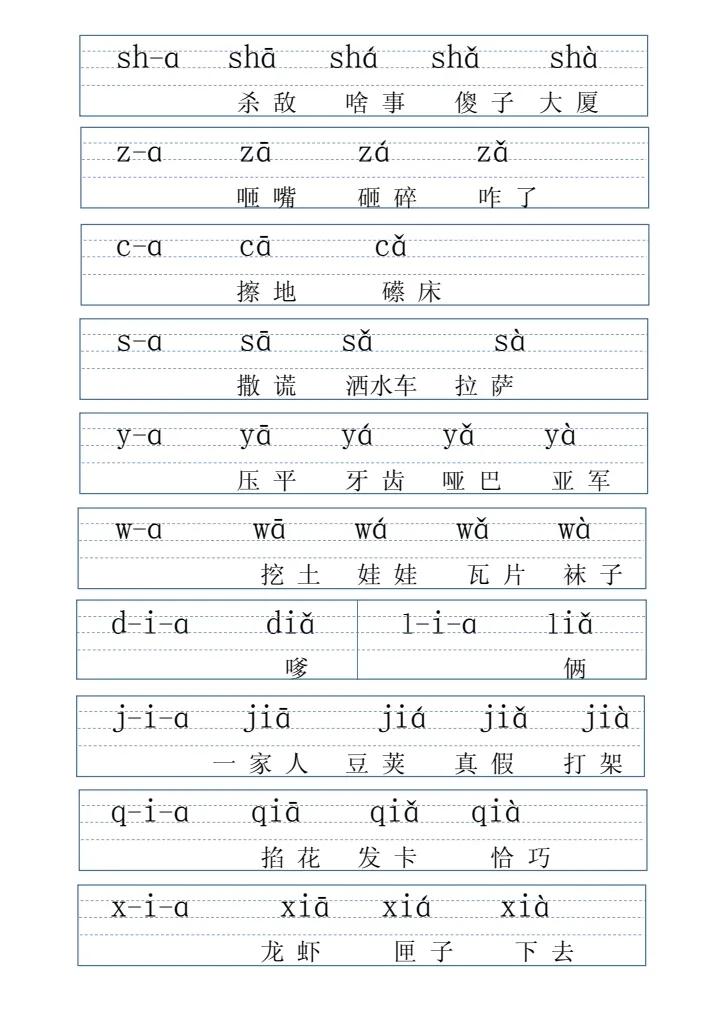 sh-ɑ shā shá shǎ shà
杀 敌 啥 事 傻 子 大 厦
z-ɑ zā zá zǎ
咂 嘴 砸 碎 咋 了
c-ɑ cā cǎ
擦 地 礤 床
s-ɑ sā sǎ sà
撒 谎 洒水车 拉 萨
y-ɑ yā yá yǎ yà
压 平 牙 齿 哑 巴 亚 军
w-ɑ wā wá wǎ wà
挖 土 娃 娃 瓦 片 袜 子
d-i-ɑ diǎ l-i-ɑ liǎ
嗲 俩
j-i-ɑ jiā jiá jiǎ jià
一 家 人 豆 荚 真 假 打 架
q-i-ɑ qiā qiǎ qià
掐 花 发 卡 恰 巧
x-i-ɑ xiā xiá xià
龙 虾 匣 子 下 去